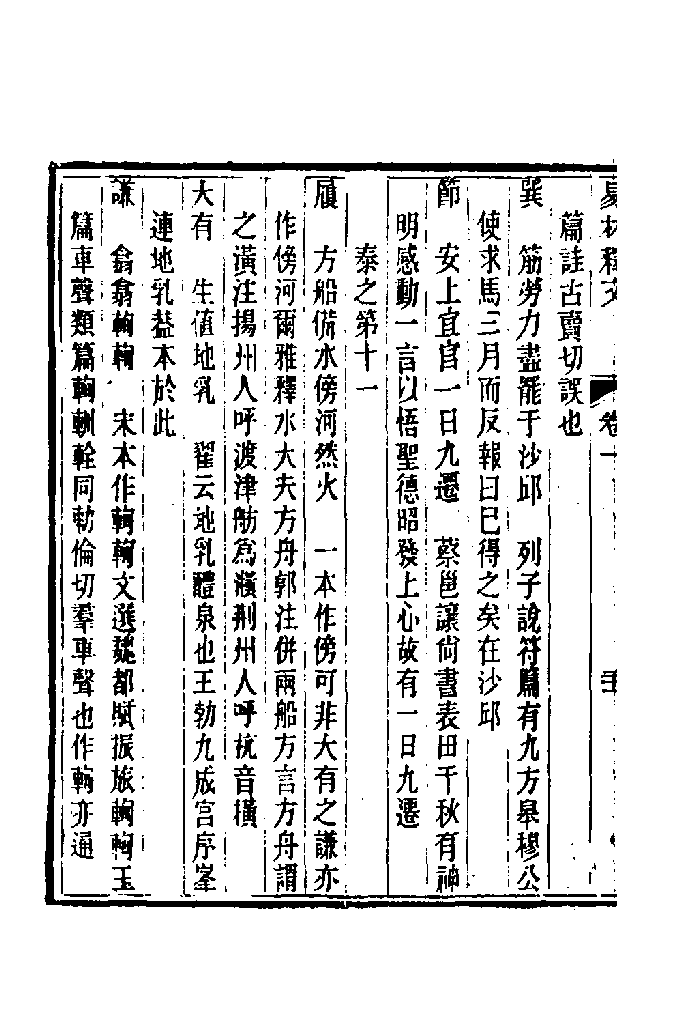 易林釋文 卷一
篇註古賣切誤也
巽 筋勞力盡罷于沙邱 列子說符篇有九方皋穆公
使求馬三月而反報曰已得之矣在沙邱
節 安上宜官一日九遷 蔡邕讓尙書表田千秋有神
明感動一言以悟聖德昭發上心故有一日九遷
泰之第十一
履 方船備水傍河然火 一本作傍可非大有之謙亦
作傍河爾雅釋水大夫方舟郭注併兩船方言方舟謂
之潢注揚州人呼渡津舫爲㶇荆州人呼杭音橫
大有 生値地乳 翟云地乳醴泉也王勃九成宮序峯
連地乳葢本於此
謙 翕翕輷輷 宋本作輷輷文選魏都賦振旅輷輷玉
篇車聲類篇輷軥輇同勑倫切羣車聲也作輷亦通